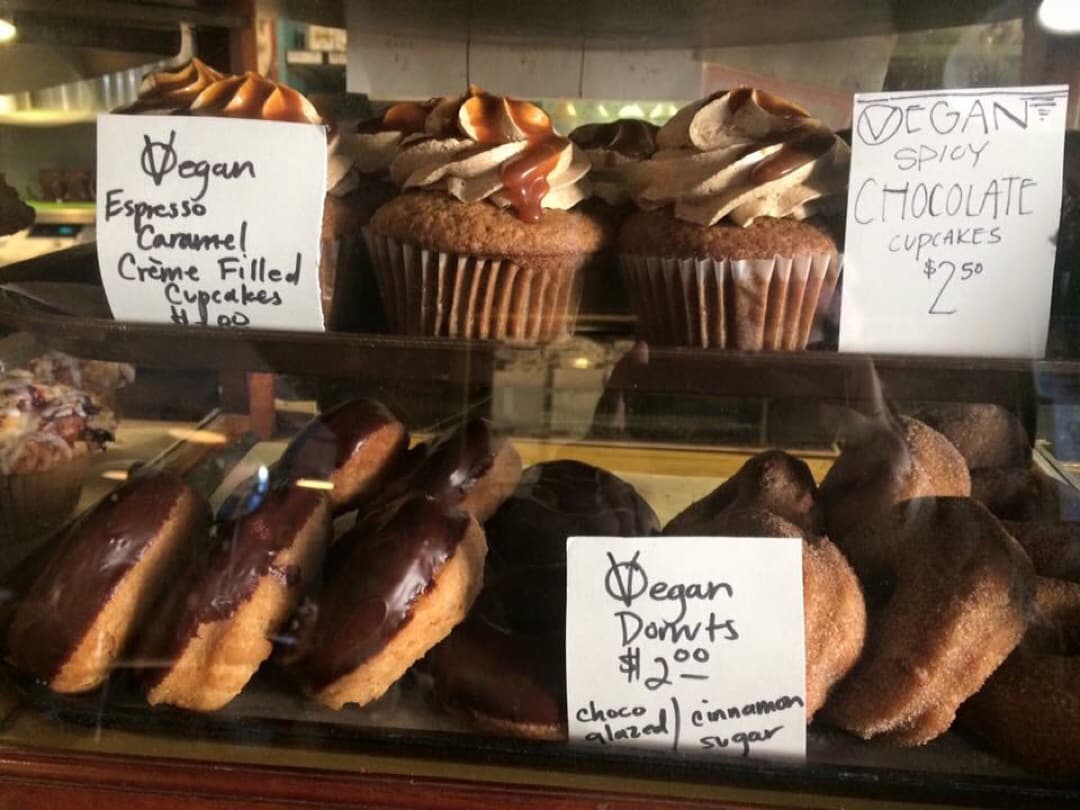 Vegan
Espresso
Caramel
Crème Filled
Cupcakes
VEGAN
SPICY
CHOCOLATE
CUPCAKES
$2.50
Vegan
Donuts
$2.00
choco / cinnamon
glazed sugar